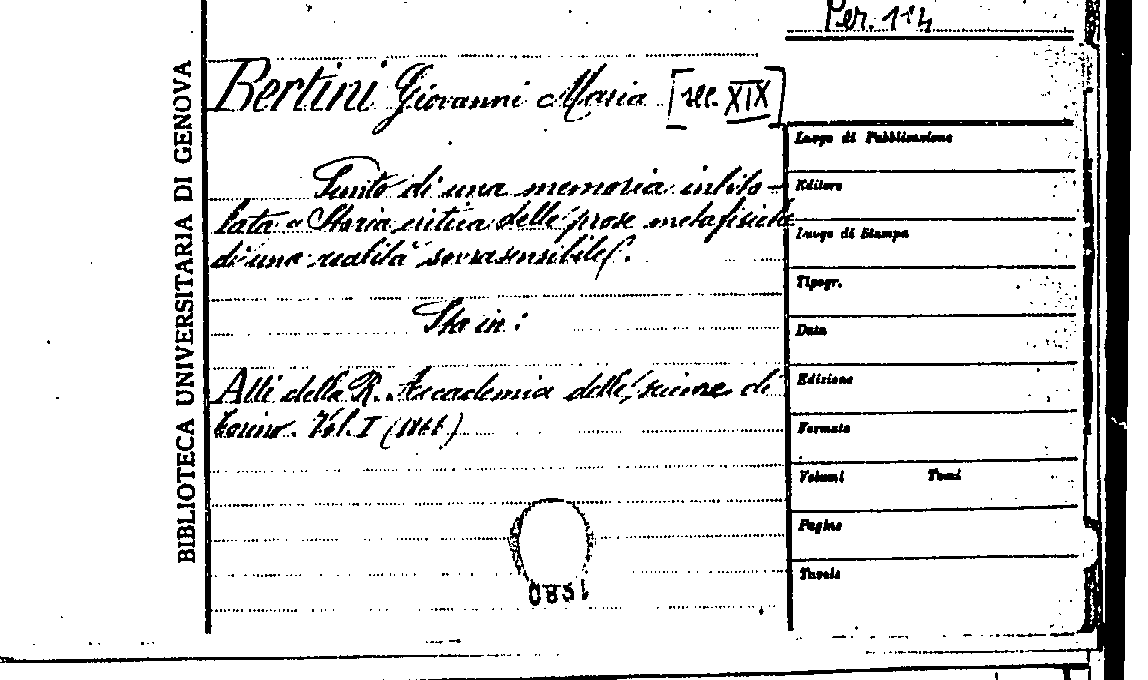 Per. 114
BIBLIOTECA UNIVERSITARIA DI GENOVA
Bertini Giovanni Maria [sec. XIX]
Sunto di una memoria intito-
lata "Storia critica delle prove metafisiche
di una realità sovrasensibile".
Sta in:
Atti della R. Accademia delle scienze di
Torino. Vol. I (1866)
Luogo di Pubblicazione
Editore
Luogo di Stampa
Tipogr.
Data
Edizione
Formato
Volumi Tomi
Pagine
Tavole